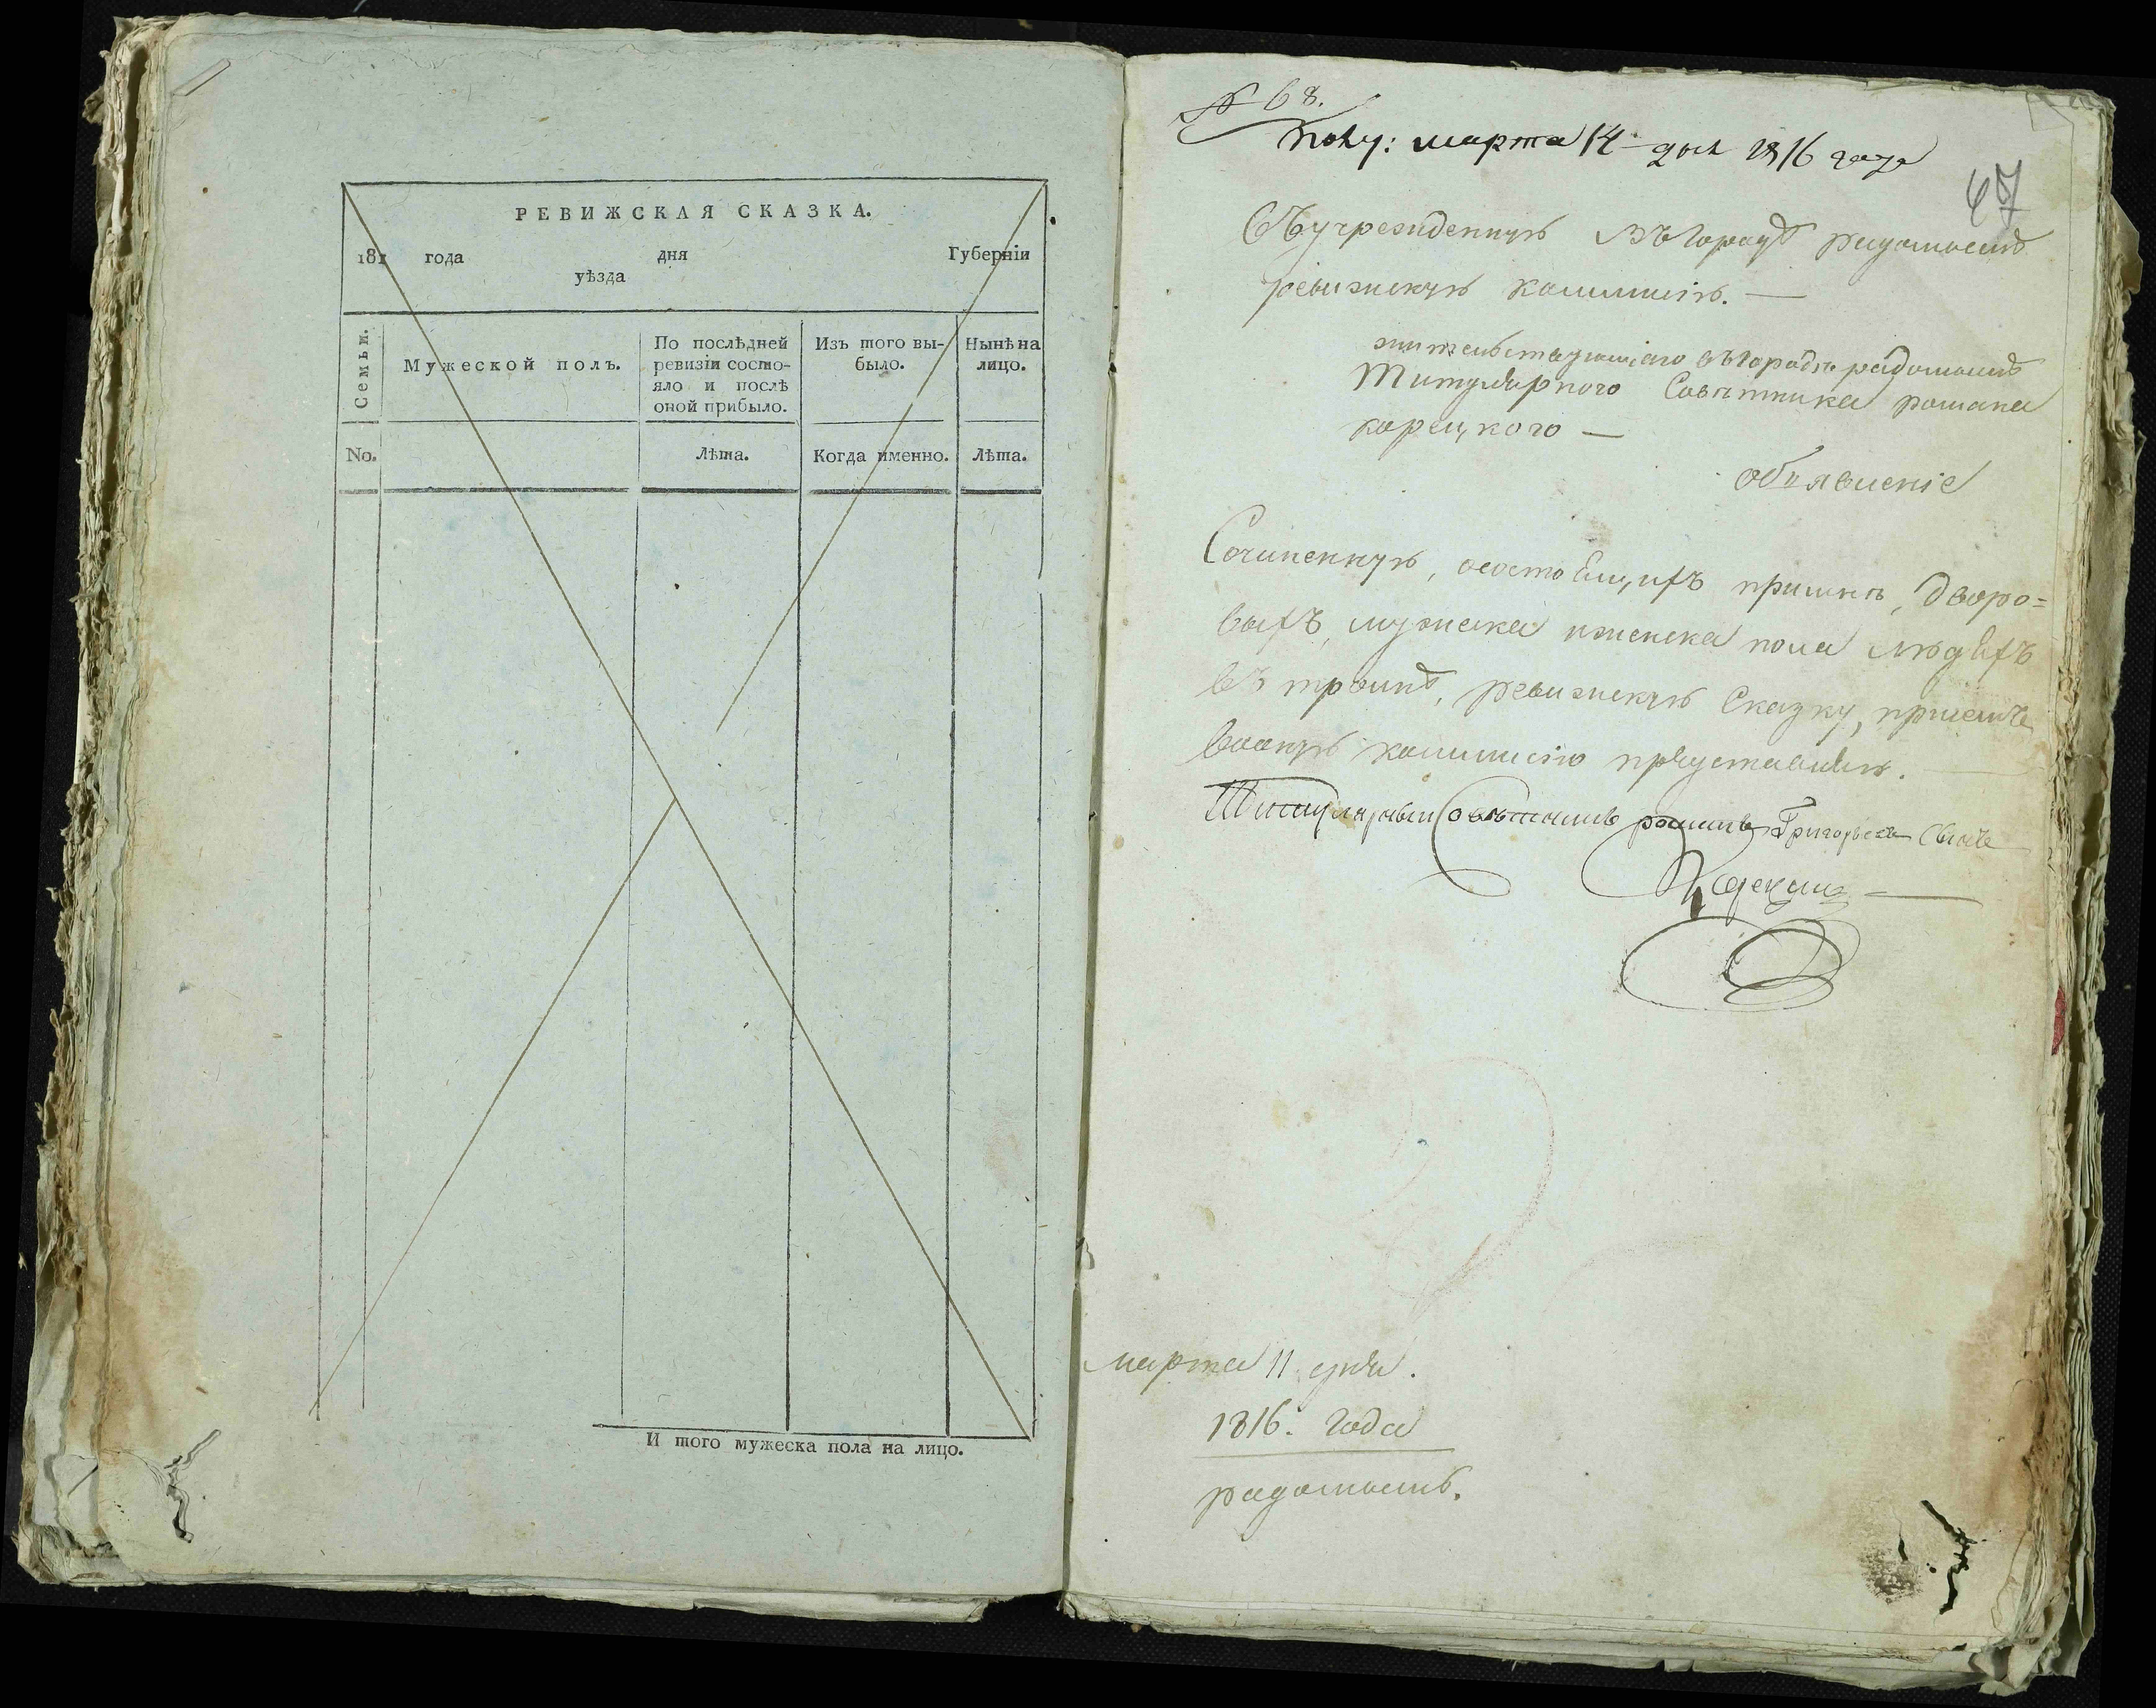 РЕВИЖСКАЯ СКАЗКА.
181 года дня Губерніи
уѣзда
Семьи.
Мужеской полъ.
По послѣдней
ревизіи состо-
яло и послѣ
оной прибыло.
Изъ того вы-
было.
Нынѣ на
лицо.
No.
Лѣта.
Когда именно.
Лѣта.
И того мужеска пола на лицо.
№ 68.
Полу: марта 14 дня 1816 года
47
Въ учрежденную въ городѣ радомыслѣ
ревижскую коммисію. —
жительствующаго въ городѣ радомыслѣ
Титулярного Совѣтника романа
корецкого —
объявленіе
Сочиненную, о состоящихъ при мнѣ, дворо=
выхъ, мужеска и женска пола людехъ
въ троинѣ, ревижскую Сказку, при семъ
во оную коммисію представляю.
Титулярный Совѣтникъ романъ Григорьевъ Сынъ
Корецкий
марта 11 дня.
1816. года
радомысль.